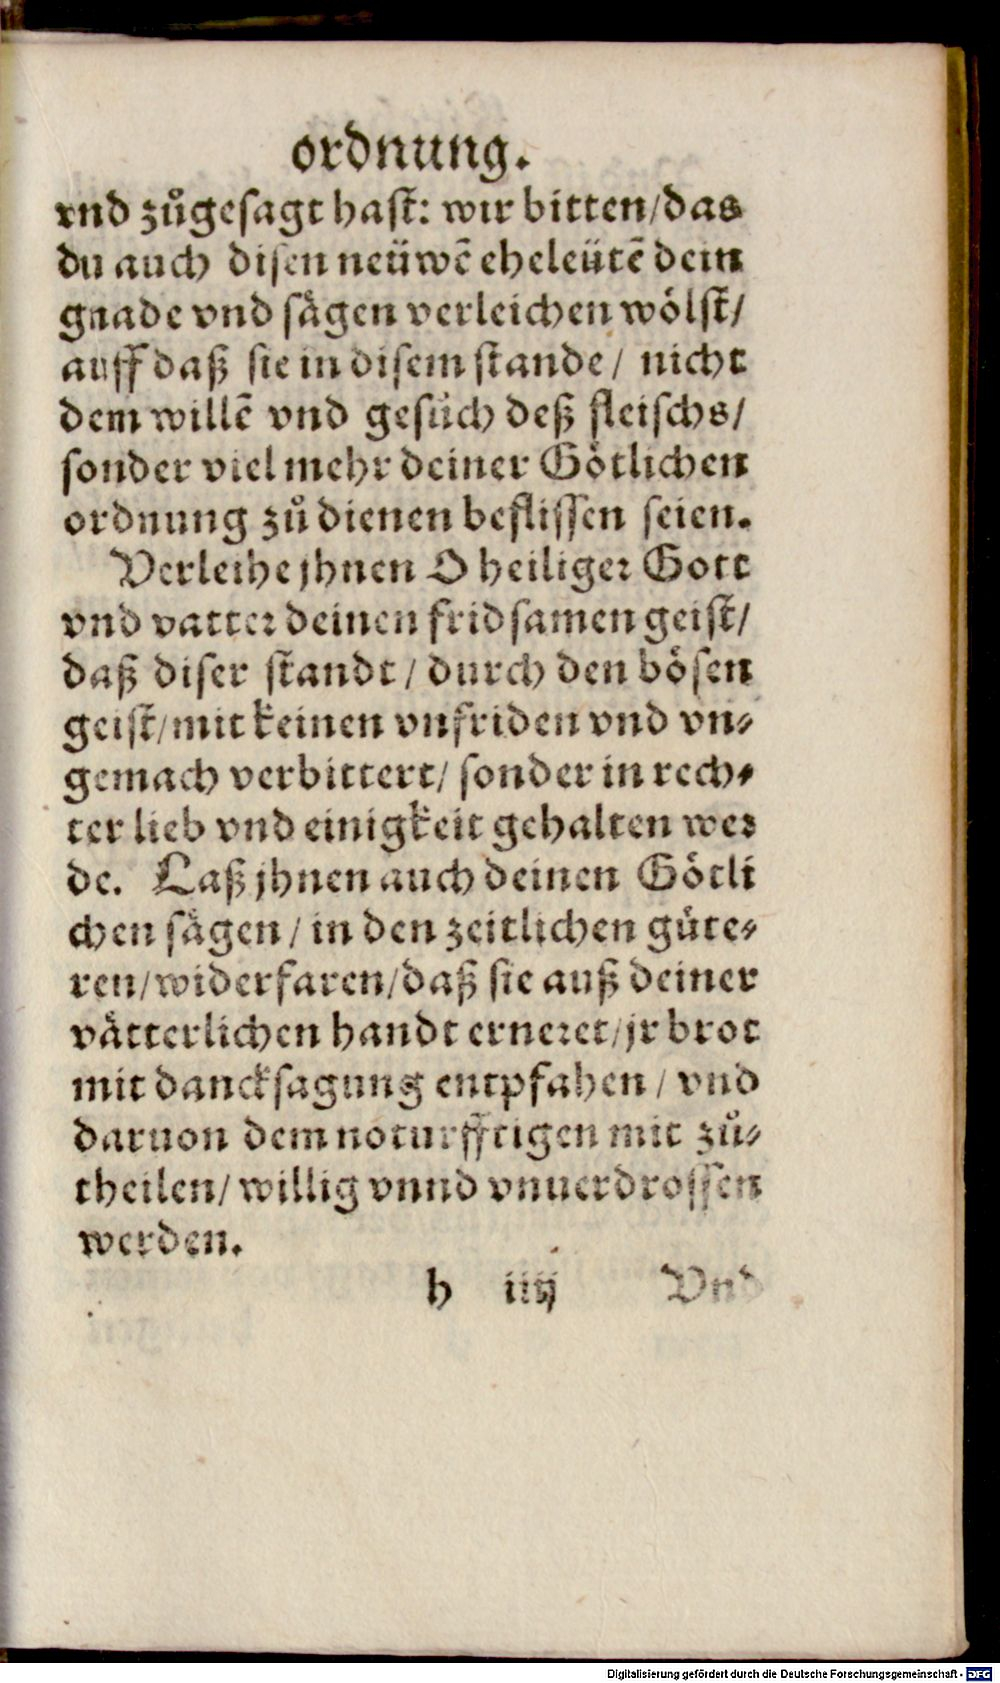 ordnung.
vnd zůgesagt hast: wir bitten/das
du auch disen neüwē eheleütē dein
gnade vnd sågen verleichen wölst/
auff daß sie in disem stande / nicht
dem willē vnd gesůch deß fleischs/
sonder viel mehr deiner Götlichen
ordnung zů dienen beflissen seien.
Verleihe jhnen O heiliger Gott
vnd vatter deinen fridsamen geist/
daß diser standt / durch den bösen
geist/mit keinen vnfriden vnd vn⸗
gemach verbittert/ sonder in rech⸗
ter lieb vnd einigkeit gehalten wer
de. Laß jhnen auch deinen Götli
chen sågen / in den zeitlichen güte⸗
ren/widerfaren/daß sie auß deiner
våtterlichen handt erneret/jr brot
mit dancksagung entpfahen / vnd
daruon dem noturfftigen mit zů⸗
theilen/ willig vnnd vnuerdrossen
werden.
h iiij Vnd
Digitalisierung gefördert durch die Deutsche Forschungsgemeinschaft - DFG